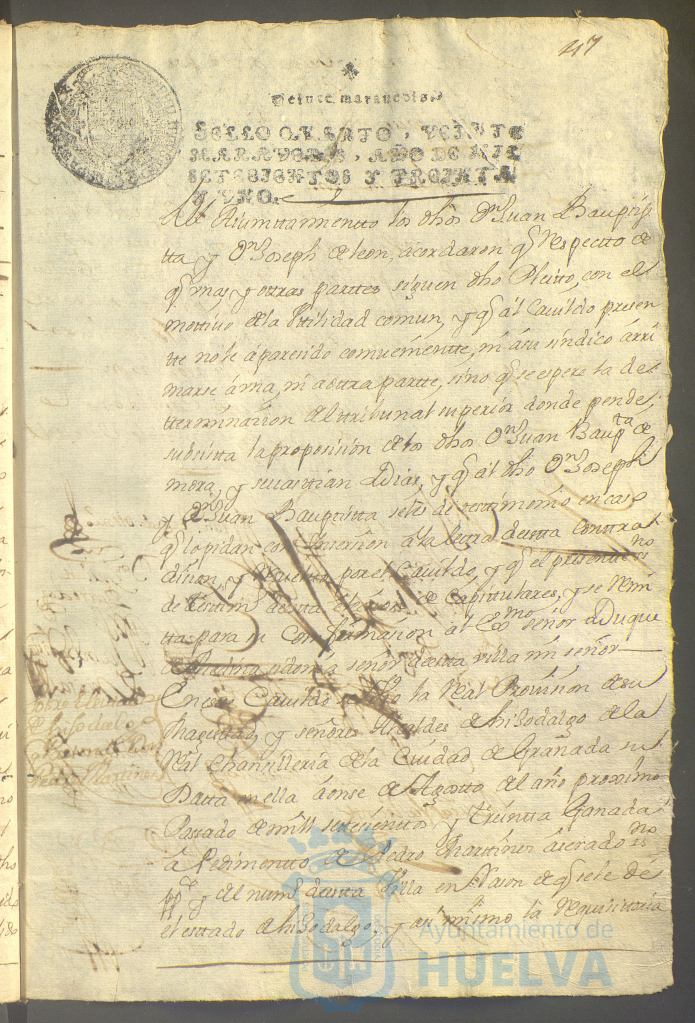 47
Veinte maravedis.
SELLO QVARTO, VEINTE
MARAVEDIS, AÑO DE MIL
SETECIENTOS Y TREINTA
Y VNO.
Aiuntamientto los dhos Dn Juan Baupti
tta y Dn Joseph de leon, acordaron qe Respectto de
qe mas y otras parttes siguen dho Pleito, con el
mottivo de la Utilidad comun, y qe al Cavildo presen
tte no le á paresido combeniente, ni á su síndico arri
marse á una, ni a ottra partte, sino qe se espere la de
tterminazion del tribunal superior donde pende,
subsista la proposision de los dhos Dn Juan Baupta de
mora, y
Dias, y qe al dho Dn Joseph
y Dn Juan Bauptista se les dé testimonio en caso
qe lo pidan con Insersion a la letra de esta Contra
dizion, y Respuesta por el Cavildo, y qe el presente sno
de testim de esta elezion de Capitulares, y se Remi
tta para su Confirmazion al Exmo señor Duque
de Medina sidonia señor de esta villa mi señor
En este Cavildo la Real Provision de su
Magestad, y señores Alcaldes de hijosdalgo de la
Real Chansilleria de la Ciudad de Granada su
Datta en ella á onse de Agosto del año proximo
Passado de mill settesientos y treintta Ganada
á Pedimentto de Pedro Marttines
sno
pco y del num de esta Villa en Rason de qe se le dé
el esttado de hijosdalgo, y asi mismo la Requisitoria
sobre el estado
de hijosdalgo
Pedro Martines
Ayuntamiento de
HUELVA